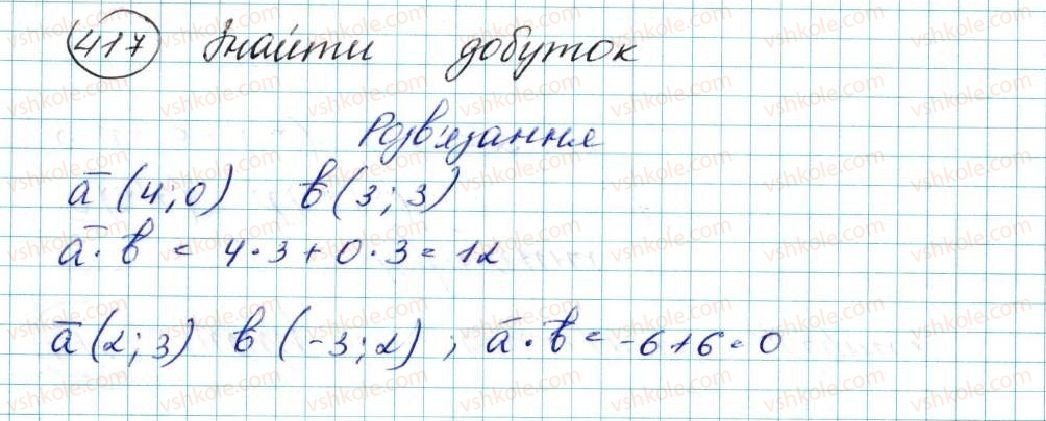 417 Знайти добуток
Розв'язання
a̅ (4; 0) b̅ (3; 3)
a̅ · b̅ = 4 · 3 + 0 · 3 = 12
a̅ (2; 3) b̅ (-3; 2) ; a̅ · b̅ = -6 + 6 = 0